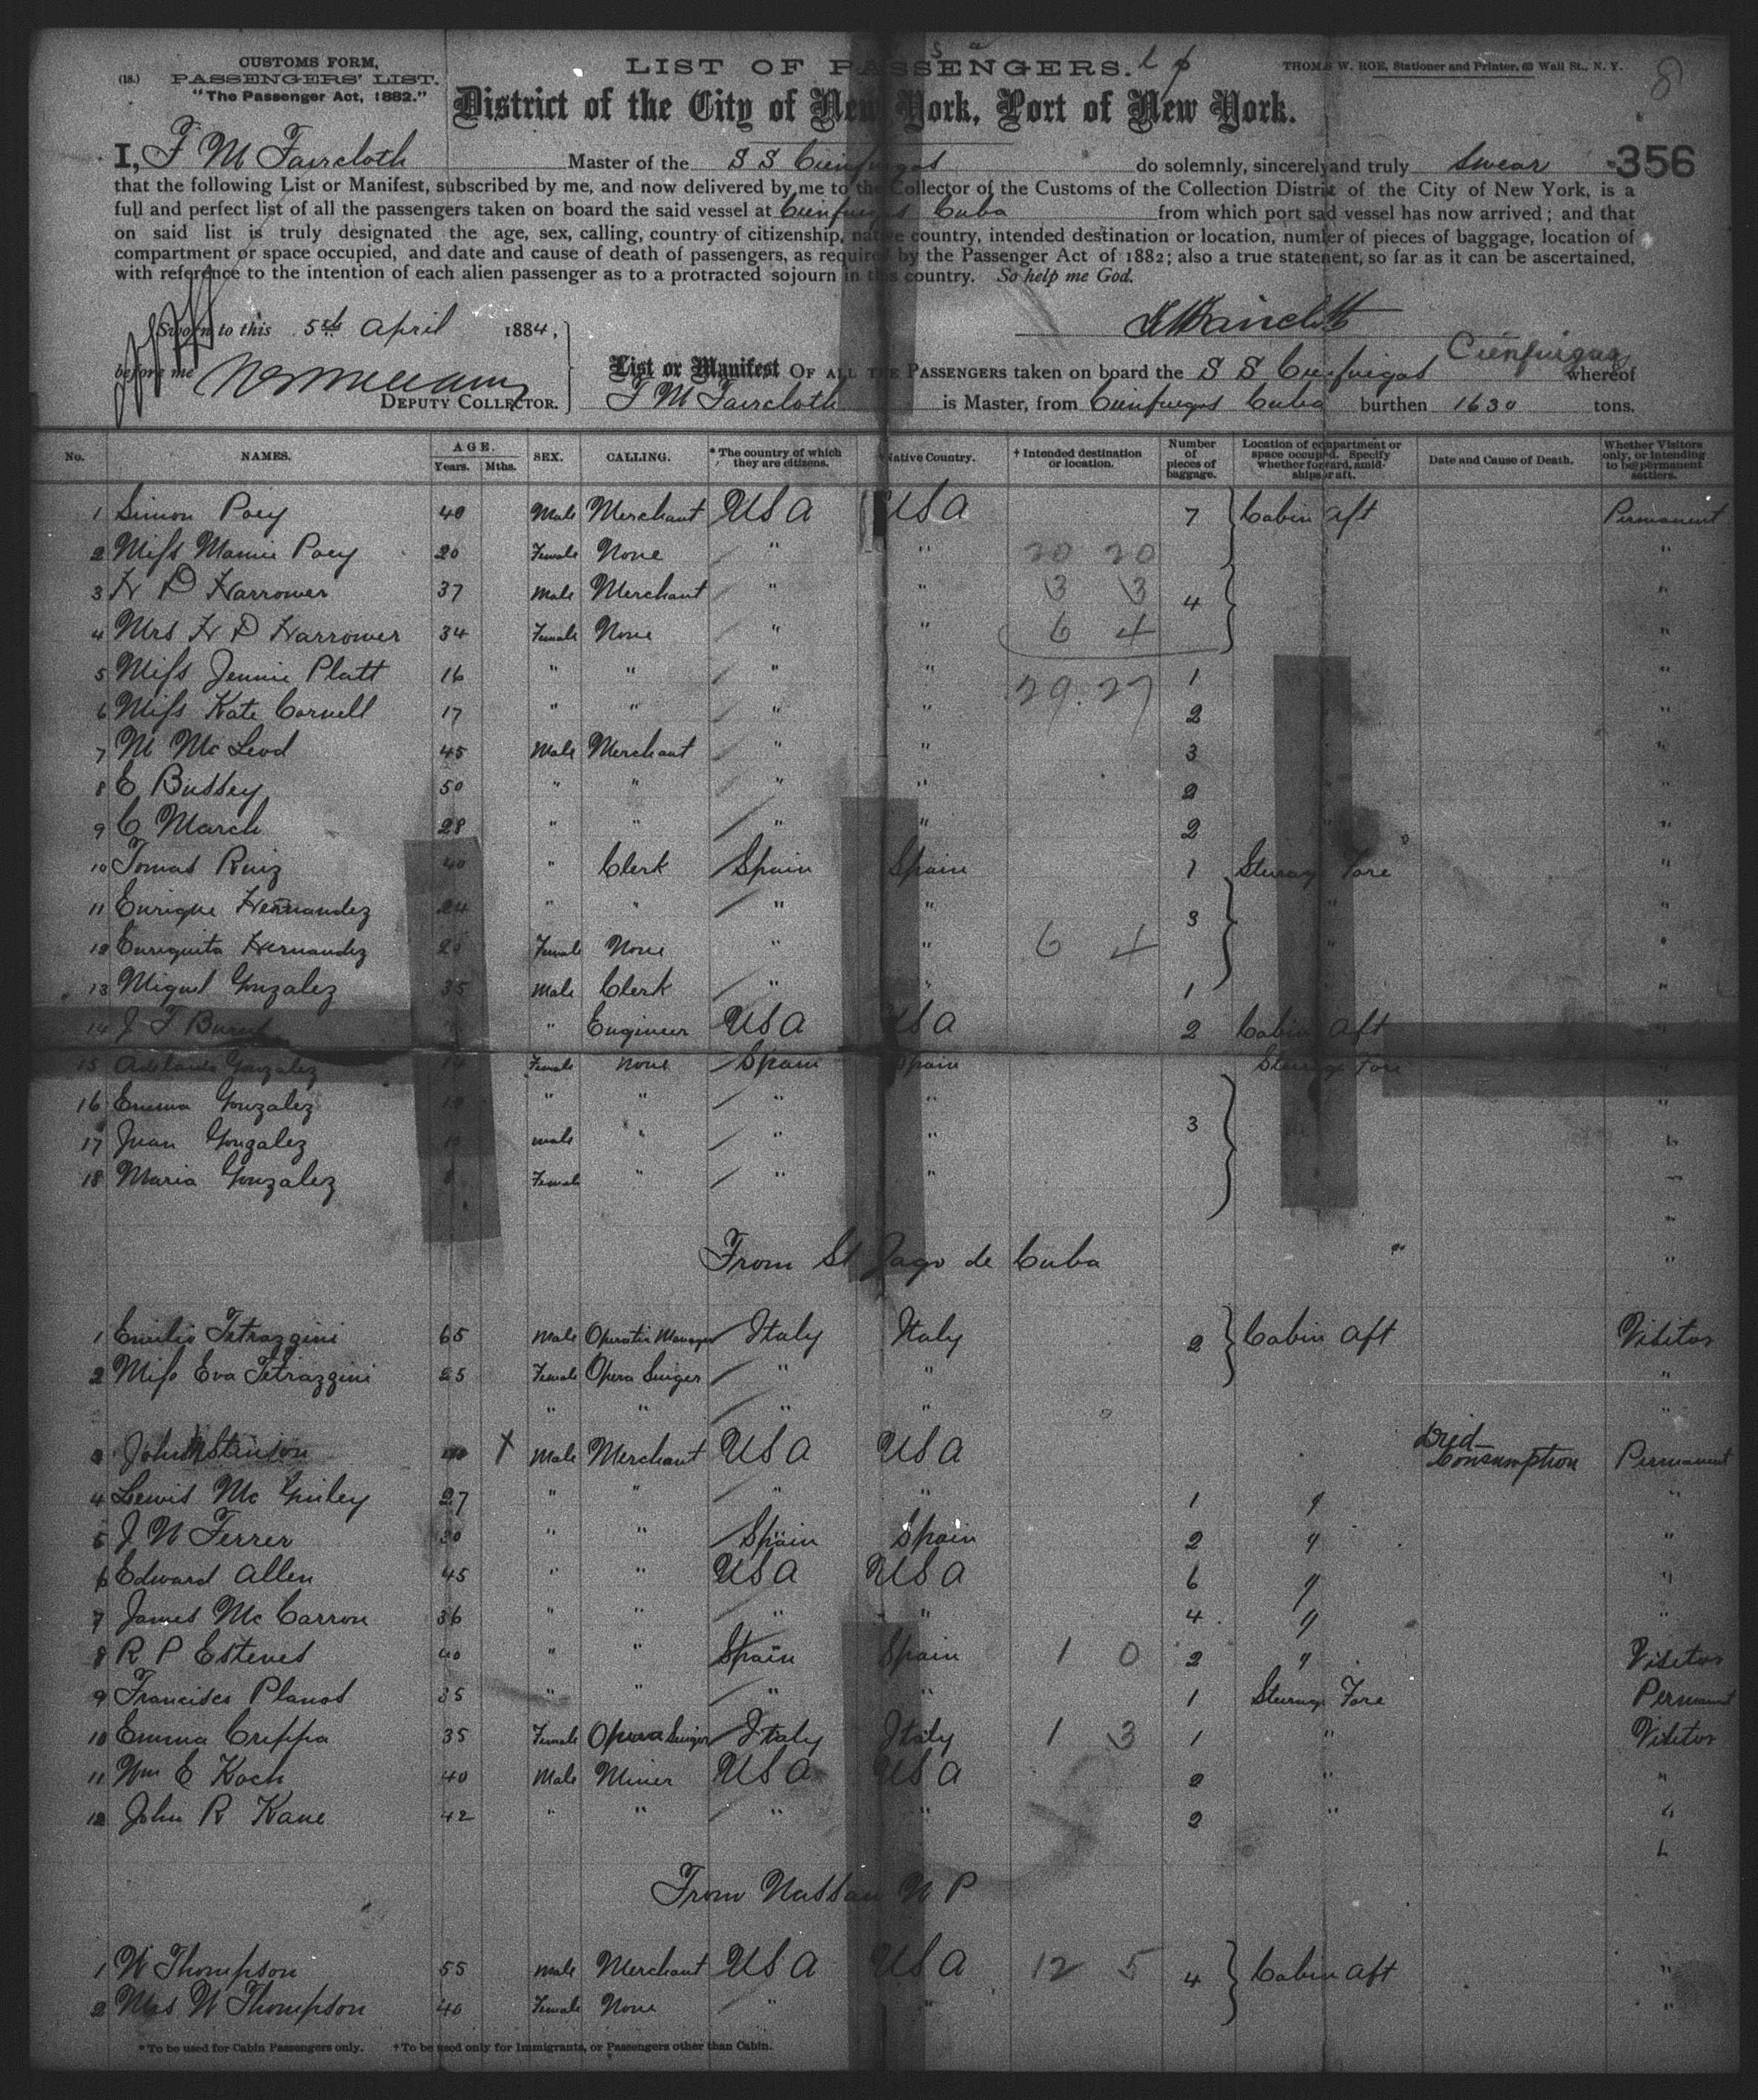 CUSTOMS FORM,
(18.) PASSENGERS' LIST.
"The Passenger Act, 1882."
LIST OF PASSENGERS.
THOMAS W. ROE, Stationer and Printer, 63 Wall St., N. Y.
8
District of the City of New York, Port of New York.
356
I, F M Faircloth Master of the S S Cienfuegos do solemnly, sincerely and truly swear
that the following List or Manifest, subscribed by me, and now delivered by me to the Collector of the Customs of the Collection District of the City of New York, is a
full and perfect list of all the passengers taken on board the said vessel at Cienfuegos Cuba from which port said vessel has now arrived; and that
on said list is truly designated the age, sex, calling, country of citizenship, native country, intended destination or location, number of pieces of baggage, location of
compartment or space occupied, and date and cause of death of passengers, as required by the Passenger Act of 1882; also a true statement, so far as it can be ascertained,
with reference to the intention of each alien passenger as to a protracted sojourn in this country. So help me God.
Sworn to this 5th April 1884,
F M Faircloth
before me
DEPUTY COLLECTOR.
Cienfuegos
List or Manifest OF ALL THE PASSENGERS taken on board the S S Cienfuegos whereof
F M Faircloth is Master, from Cienfuegos Cuba burthen 1630 tons.
No. NAMES. AGE. Years. Mths. SEX. CALLING. * The country of which they are citizens. Native Country. † Intended destination or location. Number of pieces of baggage. Location of compartment or space occupied. Specify whether forward, amidships or aft. Date and Cause of Death. Whether Visitors only, or intending to be permanent settlers.
1 Simon Poey 40 Male Merchant USA USA 7 Cabin Aft Permanent
2 Miss Mamie Poey 20 Female None " " 20 20 "
3 H P Harrower 37 Male Merchant " " 3 3 4 "
4 Mrs H P Harrower 34 Female None " " 6 4 "
5 Miss Jennie Platt 16 " " " " 1 "
29. 27
6 Miss Kate Cornell 17 " " " " 2 "
7 M McLeod 45 Male Merchant " " 3 "
8 E Bussey 50 " " " " 2 "
9 C March 28 " " " " 2 " "
10 Tomas Ruiz 40 " Clerk Spain Spain 1 Steerage Fore "
11 Enrique Hernandez 24 " " " " 3 " "
12 Enriquita Hernandez Female None " " 6 4 " "
13 Miguel Gonzalez 35 Male Clerk " " 1 "
14 J F " Engineer USA USA 2 Cabin Aft "
15 Adelaida Gonzalez Female None Spain Spain Steerage Fore "
16 Emma Gonzalez " " " " "
17 Juan Gonzalez male " " " 3 "
18 Maria Gonzalez Female " " " "
From St Jago de Cuba
1 Emilio Tetrazzini 65 Male Operatic Manager Italy Italy 2 Cabin Aft Visitor
2 Miss Eva Tetrazzini 25 Female Opera Singer " " "
" " " " "
3 John Stinson Male Merchant USA USA Died Consumption Permanent
4 Lewis Mc Ginley 27 " " " " 1 " "
5 J N Ferrer 30 " " Spain Spain 2 " "
6 Edward Allen 45 " " USA USA 6 " "
7 James Mc Carron 36 " " " " 4 " "
8 R P Esteves 40 " " Spain Spain 1 0 2 " Visitor
9 Francisco Planos 35 " " " " 1 Steerage Fore Permanent
10 Emma Crippa 35 Female Opera Singer Italy Italy 1 3 1 " Visitor
11 Wm E Koch 40 Male Miner USA USA 2 " "
12 John R Kane 42 " " " " 2 " "
From Nassau N P
1 W Thompson 55 male Merchant USA USA 12 5 4 Cabin Aft "
2 Mrs W Thompson 40 Female None " " "
* To be used for Cabin Passengers only. † To be used only for Immigrants, or Passengers other than Cabin.